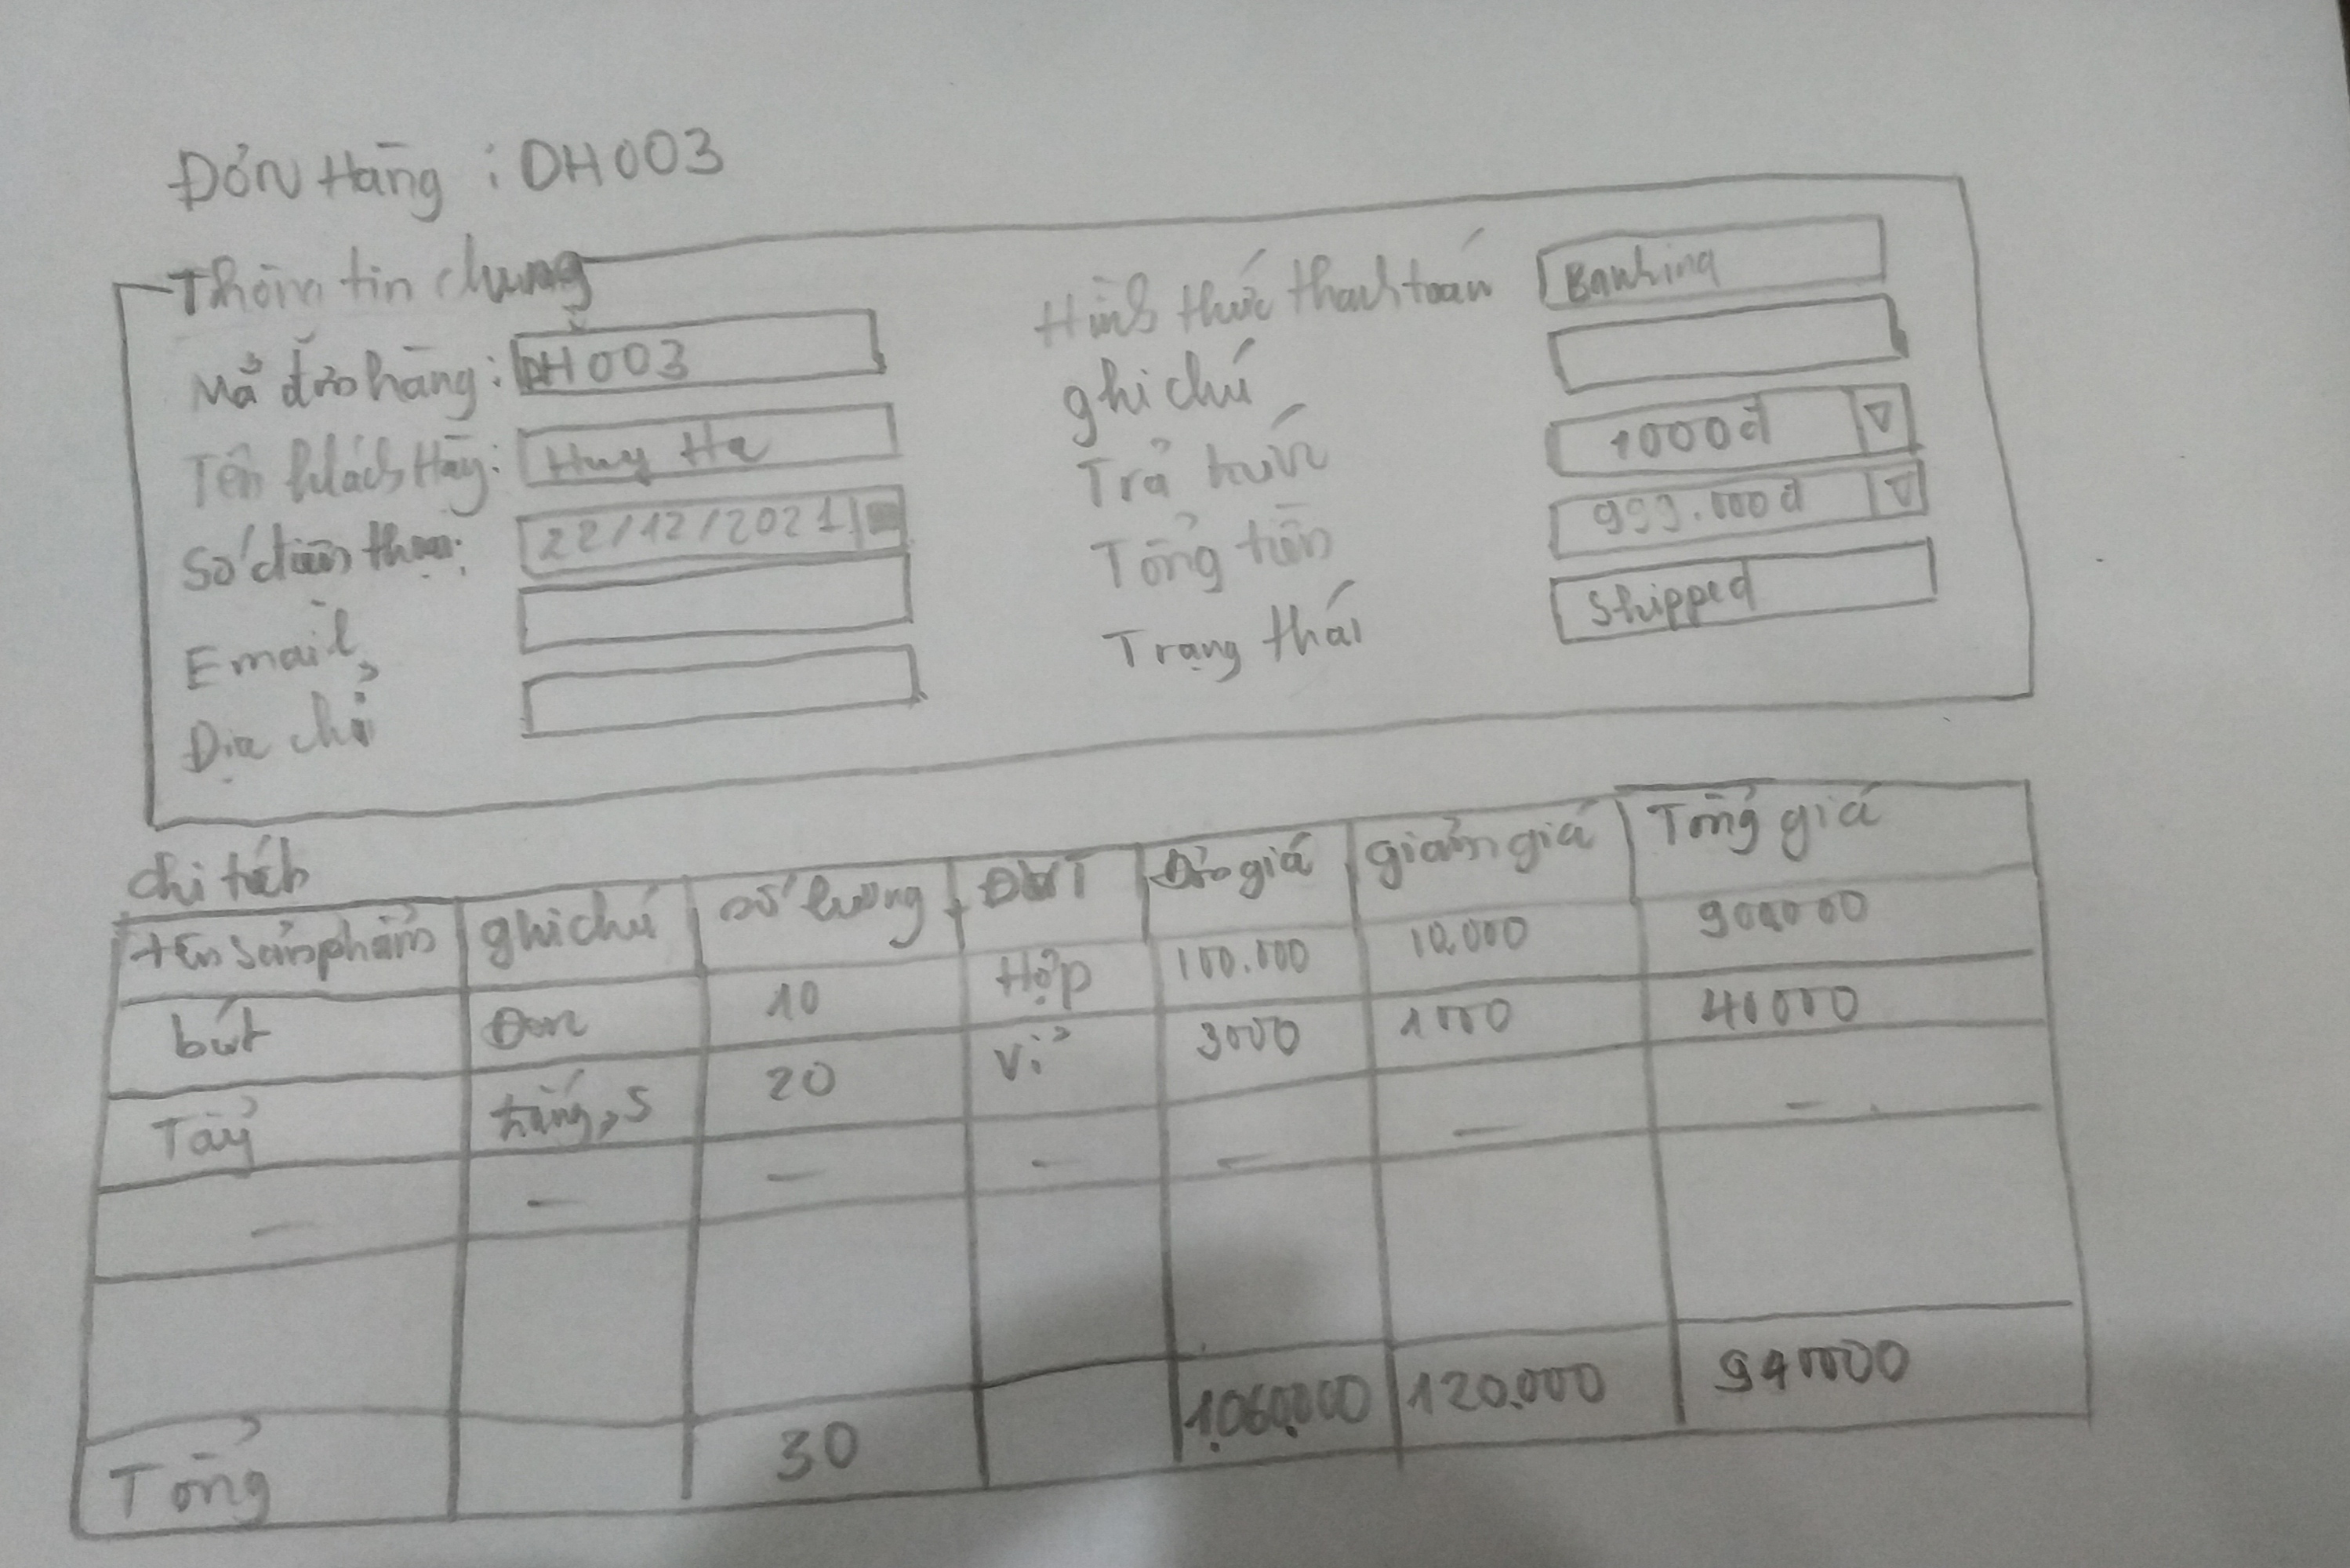 Đơn Hàng : DH003
Thông tin chung
Mã đơn hàng: DH003
Tên khách Hàng: Huy Ha
Số điện thoại: 22/12/2021
Email
Địa chỉ
Hình thức thanh toán Banking
ghi chú
Trả trước 1000đ
Tổng tiền 999.000đ
Trạng thái Shipped
Chi tiết
tên sản phẩm ghi chú số lượng ĐVT Đơn giá giảm giá Tổng giá
bút Đen 10 Hộp 100.000 10.000 900000
Tẩy trắng, S 20 Vỉ 3000 1000 40000
— — — — — — —
Tổng 30 1.060.000 120.000 940000